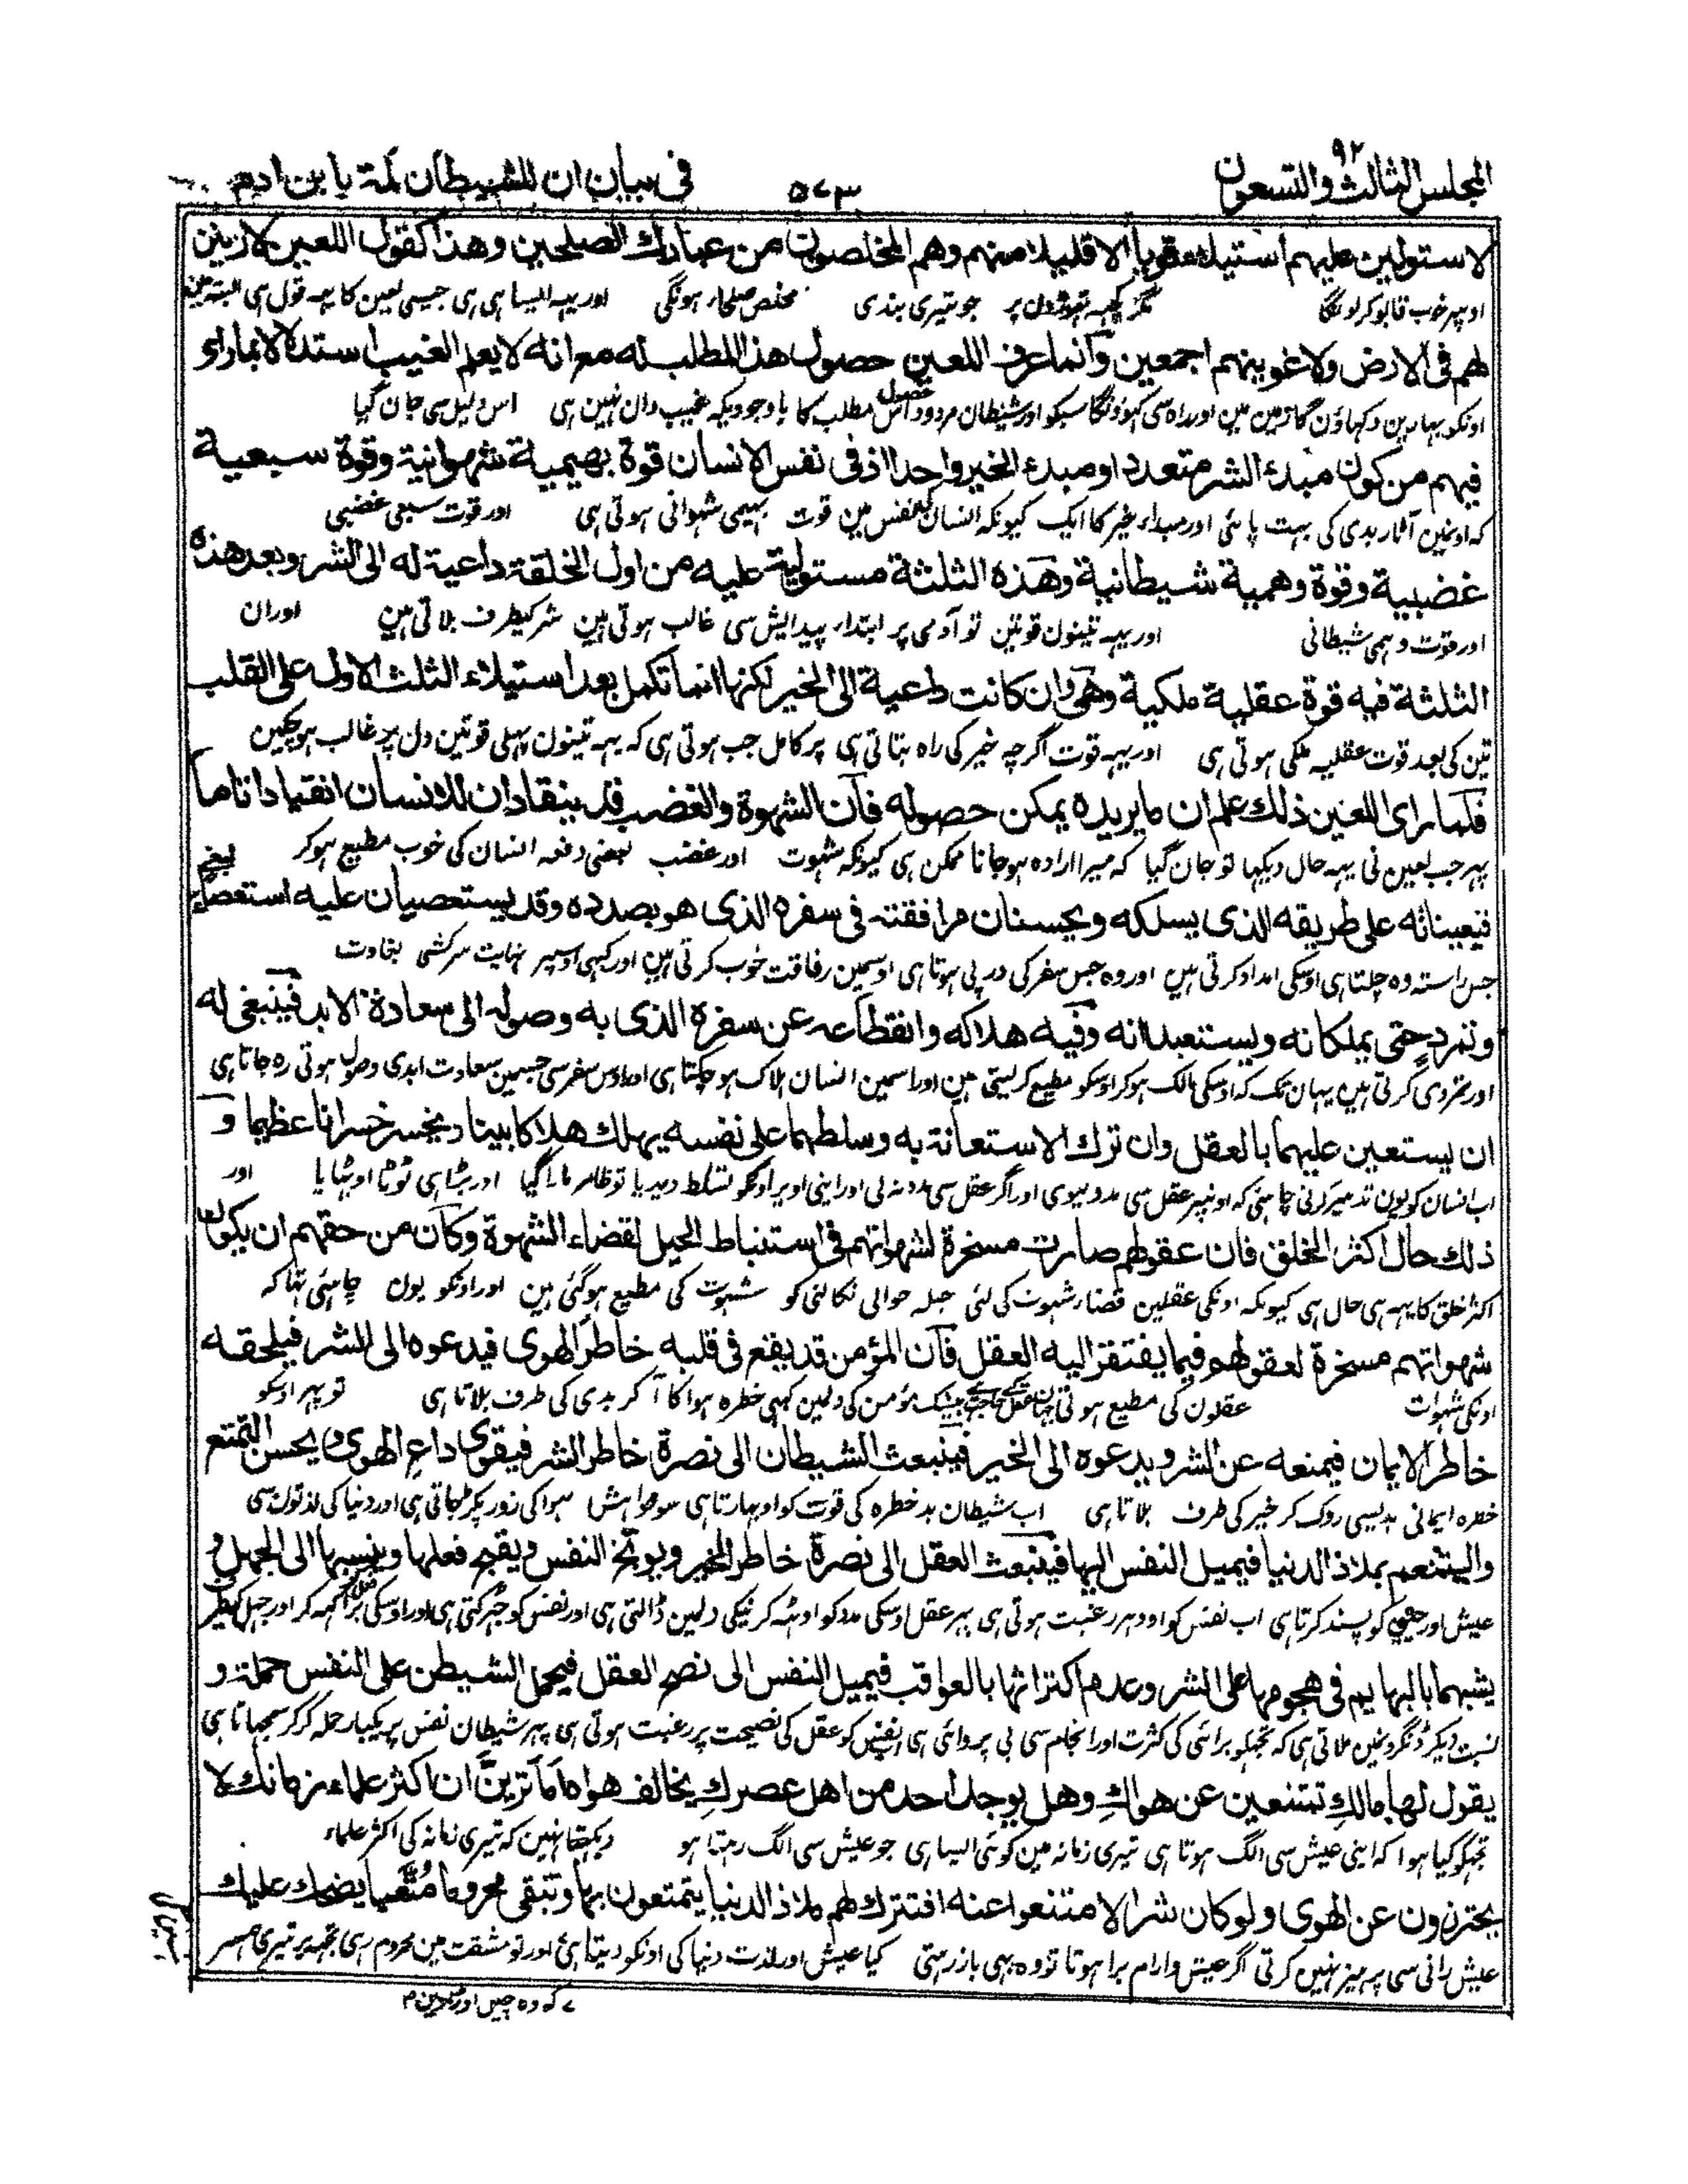 المجلس الثالث والتسعون ٩٢
٥٧٣
فی بیان ان للشیطان لمة یا بن ادم
لاستولین علیهم استیلاء قویا الا قلیلا منهم وهم المخلصون من عبادك الصلحین وهذا كقول اللعین لازینن
اوسپر خوب قابو کرلونگا مگر کچهه تهوڑون پر جو تیری بندی مخلص صلحاء ہونگی اور یہہ ایسا ہی ہی جیسی لعین کا یہہ قول ہی البته
لهم فی الارض ولاغوینهم اجمعین وانما عرف اللعین حصول هذا المطلب له مع انه لا یعلم الغیب استدلالا بما رای
اونکو بہارین دکهاؤن گا زمین مین اور راہ سی کهوونگا سبکو اور شیطان مردود اس مطلب کا حصول باوجودیکہ غیب دان نہین ہی اس دلیل سی جان گیا
فیهم من كون مبدء الشر متعددا ومبدء الخیر واحدا اذ فی نفس الانسان قوة بهیمیة شهوانیة وقوة سبعیة
کہ اونمین آثار بدی کی بہت پائی اور مبداء خیر کا ایک کیونکہ انسان کی نفس مین قوت بہیمی شہوانی ہوتی ہی اور قوت سبعی غضبی
غضبیة وقوة وهمیة شیطانیة وهذه الثلثة مستولیة علیه من اول الخلقة داعیة له الی الشر وبعد هذه
اور قوت وہمی شیطانی اور یہہ تینون قوتین تو آدمی پر ابتداء پیدایش سی غالب ہوتی ہین شر کیطرف بلاتی ہین اور ان
الثلثة فیه قوة عقلیة ملكیة وهی وان كانت داعیة الی الخیر لكنها انما تكمل بعد استیلاء الثلث الاول علی القلب
تین کی بعد قوت عقلیہ ملکی ہوتی ہی اور یہہ قوت اگرچہ خیر کی راہ بتاتی ہی پر کامل جب ہوتی ہی کہ یہہ تینون پہلی قوتین دل پر غالب ہوچکین
فلما رای اللعین ذلك علم ان ما یریده یمكن حصوله فان الشهوة والغضب قد ینقادان للانسان انقیادا تاما
پہر جب لعین نی یہہ حال دیکہا تو جان گیا کہ میرا ارادہ ہوجانا ممکن ہی کیونکہ شہوت اور غضب بعضی دفعہ انسان کی خوب مطیع ہوکر
فیعینانه علی طریقه الذی یسلكه ویحسنان مرافقته فی سفره الذی هو بصدده وقد یستعصیان علیه استعصاء
جس راستہ وہ چلتا ہی اوسکی امداد کرتی ہین اور وہ جس سفر کی در پی ہوتا ہی اوسمین رفاقت خوب کرتی ہین اور کبہی اوسپر نہایت سرکشی بغاوت
وتمرد حتی یملكانه ویستعبدانه وفیه هلاكه وانقطاعه عن سفره الذی به وصوله الی سعادة الابد فینبغی له
اور تمردی کرتی ہین یہان تک کہ اوسکی مالک ہوکر اوسکو مطیع کرلیتی ہین اور اسمین انسان ہلاک ہوچکتا ہی اور اوس سفر سی جسمین سعادت ابدی وصول ہوتی رہ جاتا ہی
ان یستعین علیهما بالعقل وان ترك الاستعانة به وسلطهما علی نفسه یهلك هلاكا بینا ویخسر خسرانا عظیما و
اب انسان کو یون تدبیر کرنی چاہئی کہ اونپر عقل سی مدد لیوی اور اگر عقل سی مدد نہ لی اور اپنی اوپر اونکو تسلط دیدیا تو ظاہر مارا گیا اور بڑا ہی ٹوٹا اوٹہایا اور
ذلك حال اكثر الخلق فان عقولهم صارت مسخرة لشهواتهم فی استنباط الحیل لقضاء الشهوة وكان من حقهم ان یكون
اکثر خلق کا یہہ ہی حال ہی کیونکہ اونکی عقلین قضاء شہوت کی لئی حیلہ حوالی نکالنی کو شہوت کی مطیع ہوگئی ہین اور اونکو یون چاہئی تہا کہ
شهواتهم مسخرة لعقولهم فیما یفتقر الیه العقل فان المؤمن قد یقع فی قلبه خاطر الهوی فیدعوه الی الشر فیلحقه
اونکی شہوات عقلون کی مطیع ہوتی بیشک مؤمن کی دلمین کبہی خطرہ ہوا کا آکر بدی کی طرف بلاتا ہی تو پہر اوسکو
خاطر الایمان فیمنعه عن الشر ویدعوه الی الخیر فینبعث الشیطان الی نصرة خاطر الشر فیقوی داع الهوی ویحسن التمتع
خطرہ ایمانی بدیسی روک کر خیر کی طرف بلاتا ہی اب شیطان بد خطرہ کی قوت کو اوبہارتا ہی سو خواہش ہوا کی زور پکڑ جاتی ہی اور دنیا کی لذتون سی
والتنعم بملاذ الدنیا فیمیل النفس الیها فینبعث العقل الی نصرة خاطر الخیر ویوبخ النفس ویقبح فعلها وینسبها الی الجهل و
عیش اور کو پسند کرتا ہی اب نفس کو اودہر رغبت ہوتی ہی پہر عقل اوسکی مدد کو اوٹہہ کر نیکی دلمین ڈالتی ہی اور نفس کو جہڑکتی ہی اور اوسکی برا کہہ کر اور جہل کیطرف
یشبهها بالبهایم فی هجومها علی الشر وعدم اكتراثها بالعواقب فیمیل النفس الی نصح العقل فیحمل الشیطن علی النفس حملة و
نسبت دیکر ڈنگرونمین ملاتی ہی کہ تجہکو برائی کی کثرت اور انجام سی بی پروائی ہی نفس کو عقل کی نصیحت پر رغبت ہوتی ہی پہر شیطان نفس پر یکبار حملہ کرکر سمجہاتا ہی
یقول لها مالك تمتنعین عن هواك وهل یوجد احد من اهل عصرك یخالف هواه اما ترین ان اكثر علماء زمانك لا
تجہکو کیا ہوا کہ اپنی عیش سی الگ ہوتا ہی تیری زمانہ مین کوئی ایسا ہی جو عیش سی الگ رہتا ہو دیکہتا نہین کہ تیری زمانہ کی اکثر علماء
یحترزون عن الهوی ولو كان شرا لامتنعوا عنه افتترك لهم ملاذ الدنیا یتمتعون بها وتبقی محروما متعبا یضحك علیك
عیش رانی سی پرہیز نہین کرتی اگر عیش وارام برا ہوتا تو وہ بہی باز رہتی کیا عیش اور لذت دنیا کی اونکو دیتا ہی اور تو مشقت مین محروم رہی تجہپر تیری ہمعصر